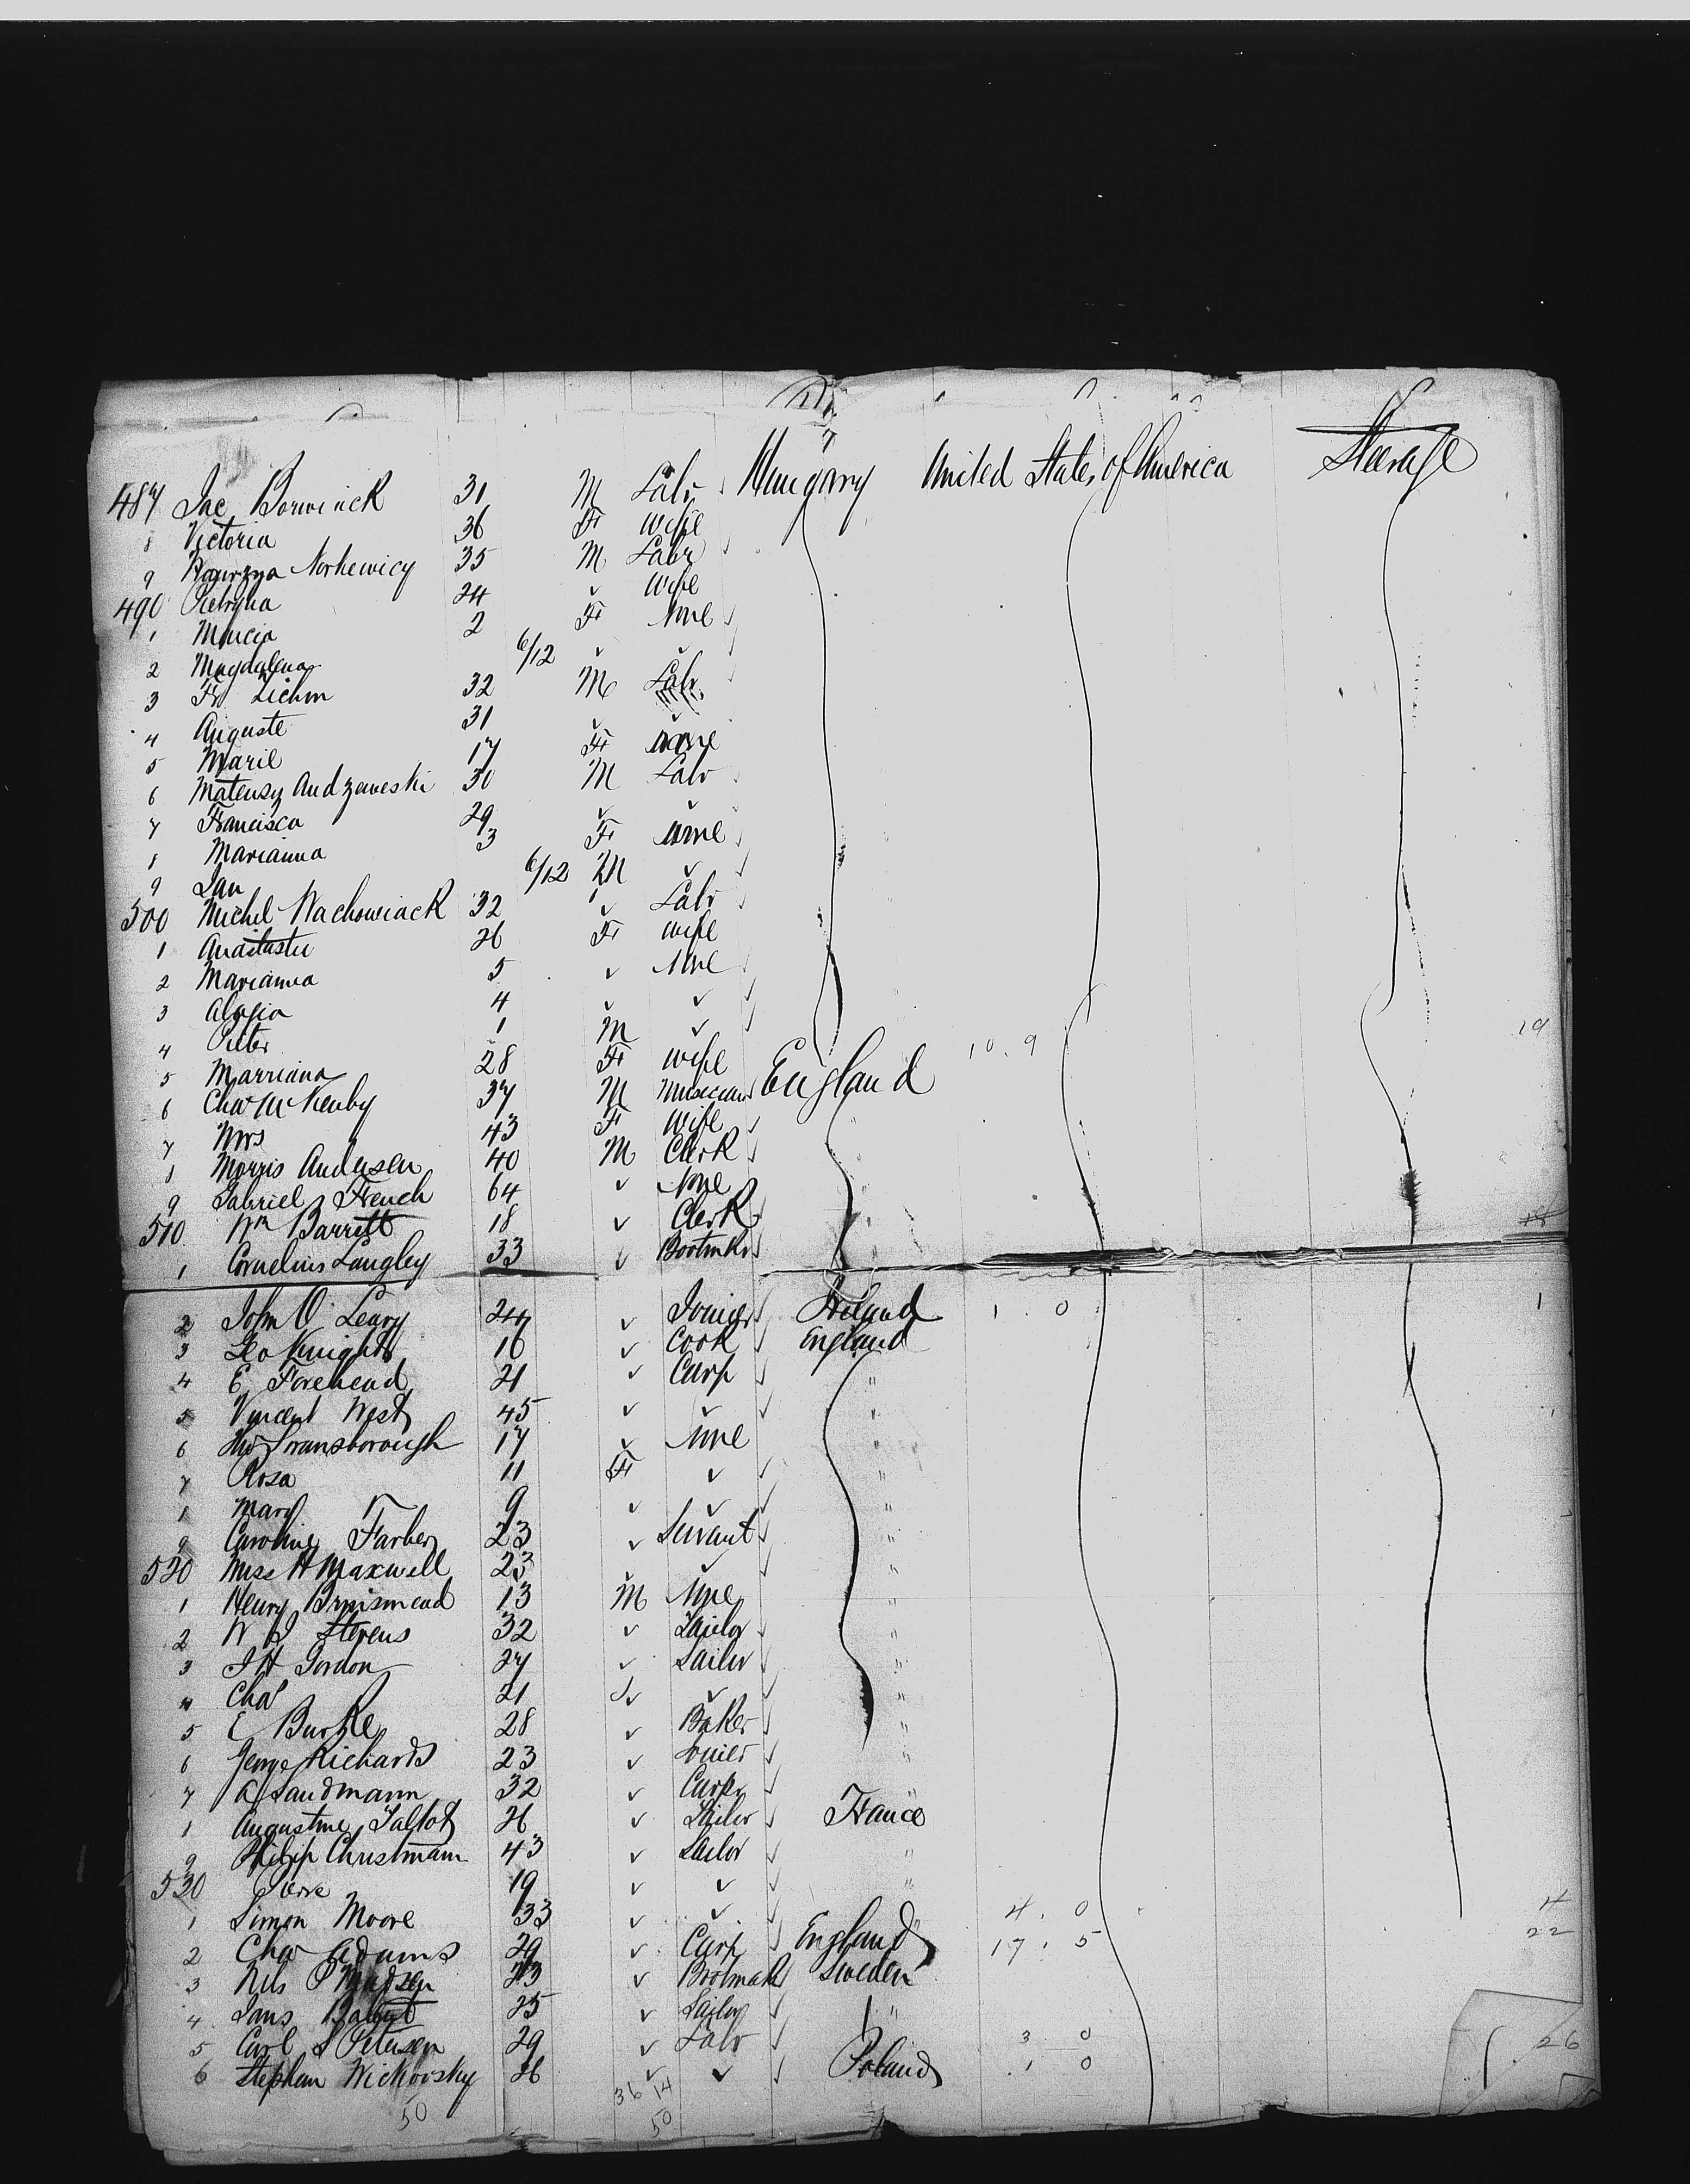 487 Jac Borwiack 31 M Labr Hungary United States of America Steerage
8 Victoria 36 F wife
9 Norkewicy 35 M Labr
490 24 ✓ Wife
1 2 F None
2 Magdalena 6/12 ✓ ✓
3 Fr Liehm 32 M Labr
4 Auguste 31 ✓ ✓
5 Marie 17 F None
6 Mateusz Andzeweski 30 M Labr
7 Francisca 29 ✓ ✓
8 Marianna 3 F None
9 Jan 6/12 M ✓
500 Michel Wachowiack 32 ✓ Labr
1 Anastastie 26 F wife
2 Marianna 5 ✓ None
3 4 ✓ ✓
4 Peter 1 M ✓
5 Marriana 28 F wife 10 . 9 19
6 Chas McKenby 37 M Musician England
7 Mrs 43 F Wife
8 Morris Andersen 40 M Clerk
9 Gabriel French 64 ✓ None
510 Wm Barrett 18 ✓ Clerk
1 Cornelius Langley 33 ✓ Bootmkr
2 John O'Leary 24 ✓ Joiner Ireland 1 . 0 1
3 Geo Knights 16 ✓ Cook England
4 E Forehead 21 ✓ Carp "
5 Vincent West 45 ✓ ✓ "
6 17 ✓ None "
7 Rosa 11 F ✓ "
8 Mary 9 ✓ ✓ "
9 Caroline Farber 23 ✓ Servant "
520 Miss H Maxwell 23 ✓ ✓ "
1 Henry 13 M None "
2 W Stevens 32 ✓ Tailor "
3 J H Gordon 27 ✓ Sailor "
4 Chas 21 ✓ ✓ "
5 E Burke 28 ✓ Baker "
6 George Richards 23 ✓ Joiner "
7 A Sandmann 32 ✓ Carp "
8 Augustine Talbot 26 ✓ Tailor France
9 Philip Christmann 43 ✓ Tailor "
530 19 ✓ ✓ "
1 Simon Moore 33 ✓ ✓ " 4 . 0 4
2 Chas Adams 29 ✓ Carp England 17 . 5 22
3 Nils P Madsen 23 ✓ Bootmak Sweden
4 Jans 25 ✓ Tailor "
5 Carl S Petersen 29 ✓ Labr 3 0 26
6 Stephan Wickovsky 26 ✓ ✓ Poland 1 0
50 36 14
50